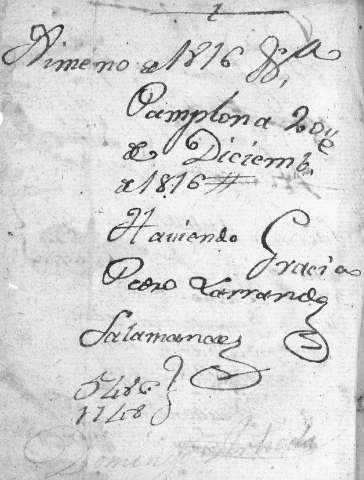 Nimeno de 1816
Pamplona 20
de Diciemb.
de 1816
Haviendo Gracia
Pedro Larrando
Salamanca
5486
1748